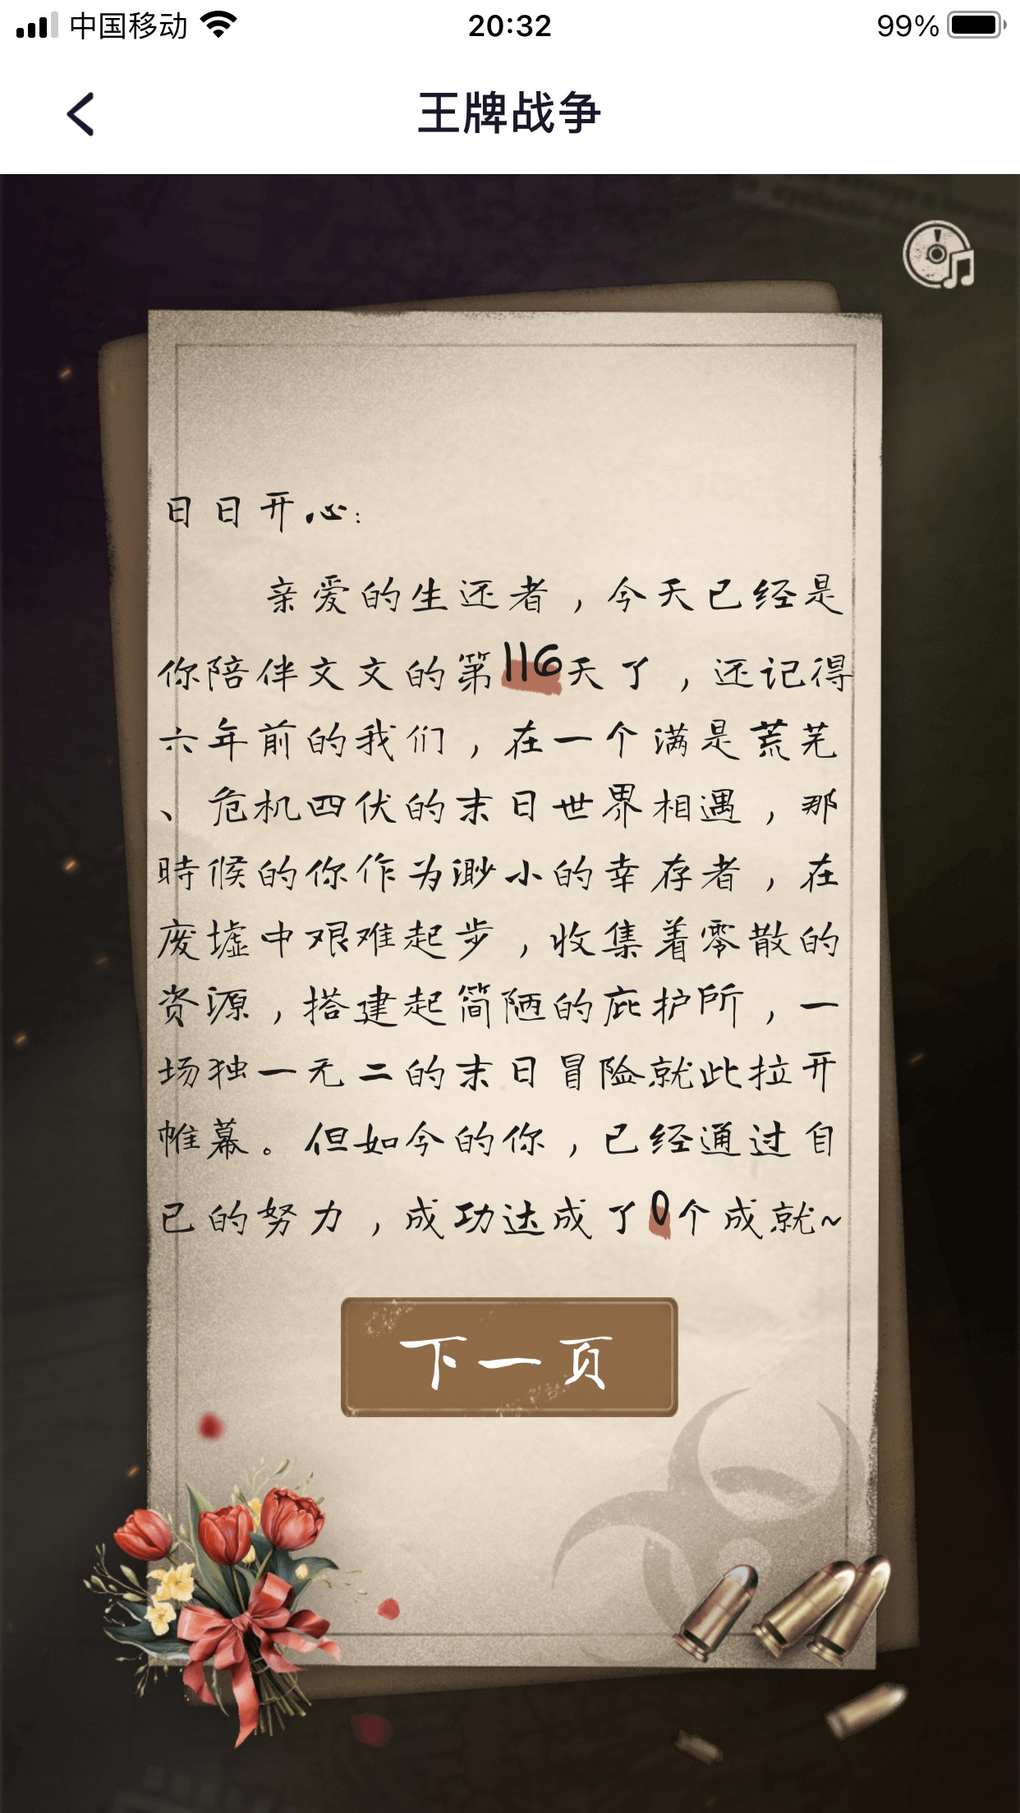 中国移动
20:32
99%
王牌战争
日日开心：
亲爱的生还者，今天已经是
你陪伴文文的第116天了，还记得
六年前的我们，在一个满是荒芜
、危机四伏的末日世界相遇，那
時候的你作为渺小的幸存者，在
废墟中艰难起步，收集着零散的
资源，搭建起简陋的庇护所，一
场独一无二的末日冒险就此拉开
帷幕。但如今的你，已经通过自
己的努力，成功达成了0个成就~
下一页